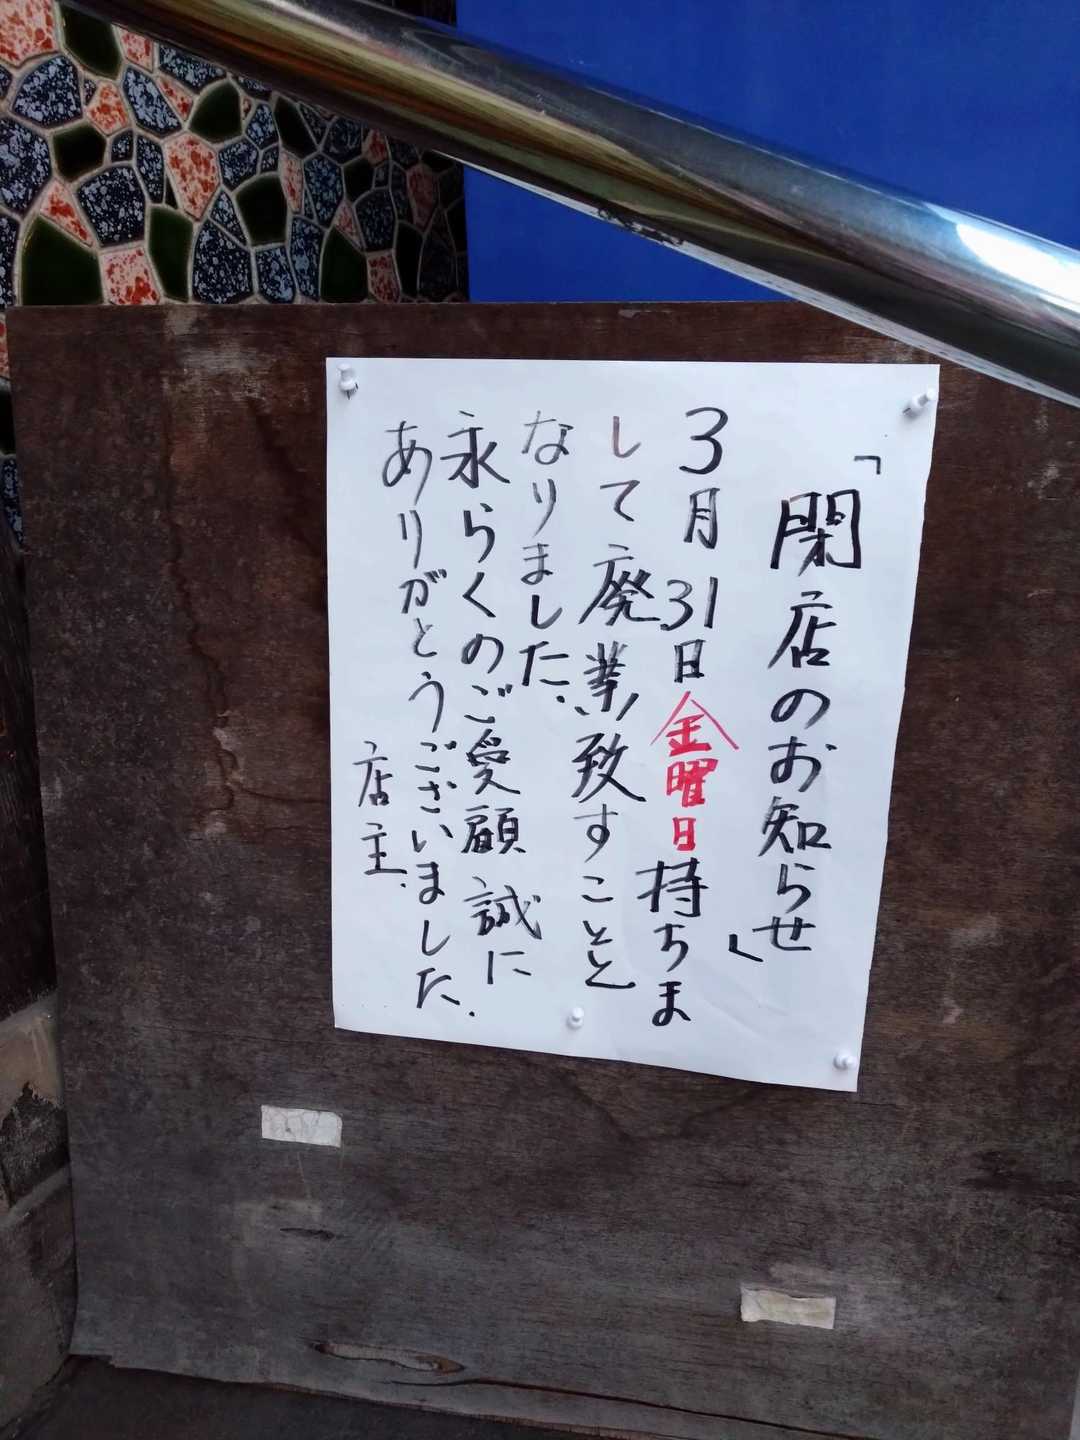 「閉店のお知らせ」
3月31日金曜日持ちま
して廃業致すことと
なりました、
永らくのご愛顧誠に
ありがとうございました.
店主.